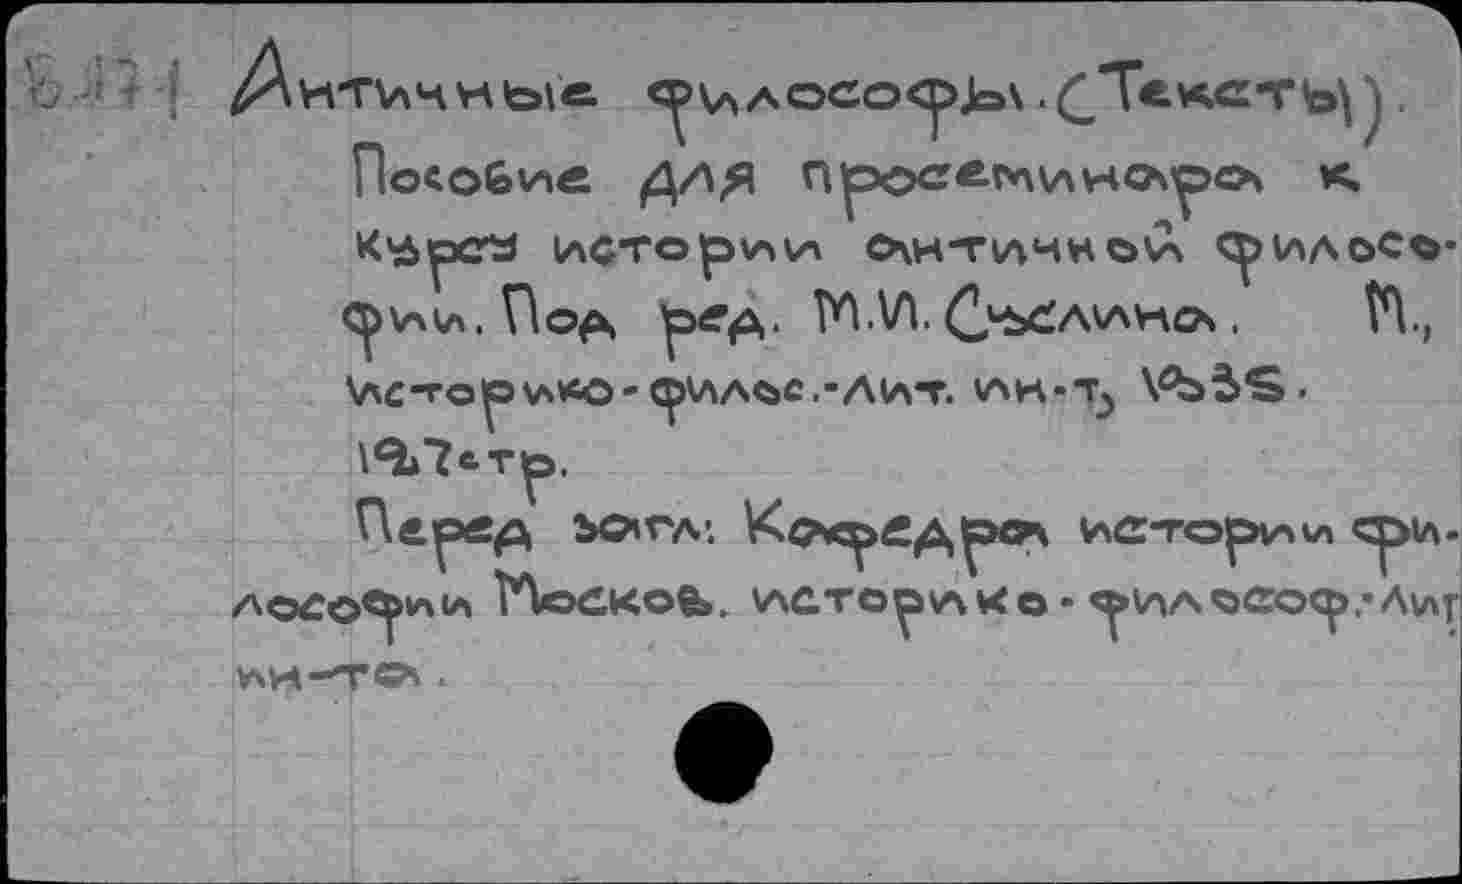 Античные философы. (Тексты).
Пособие для просеминара к
курсу истории античной филосо-
фии. Под ред. М.И. Сыслина. М.,
Историко-филос.-лит. ин-т,
стр.
Перед загл: Кафедра истории фи-
лософии Москов. историко-философ.-Лит
ин-та.